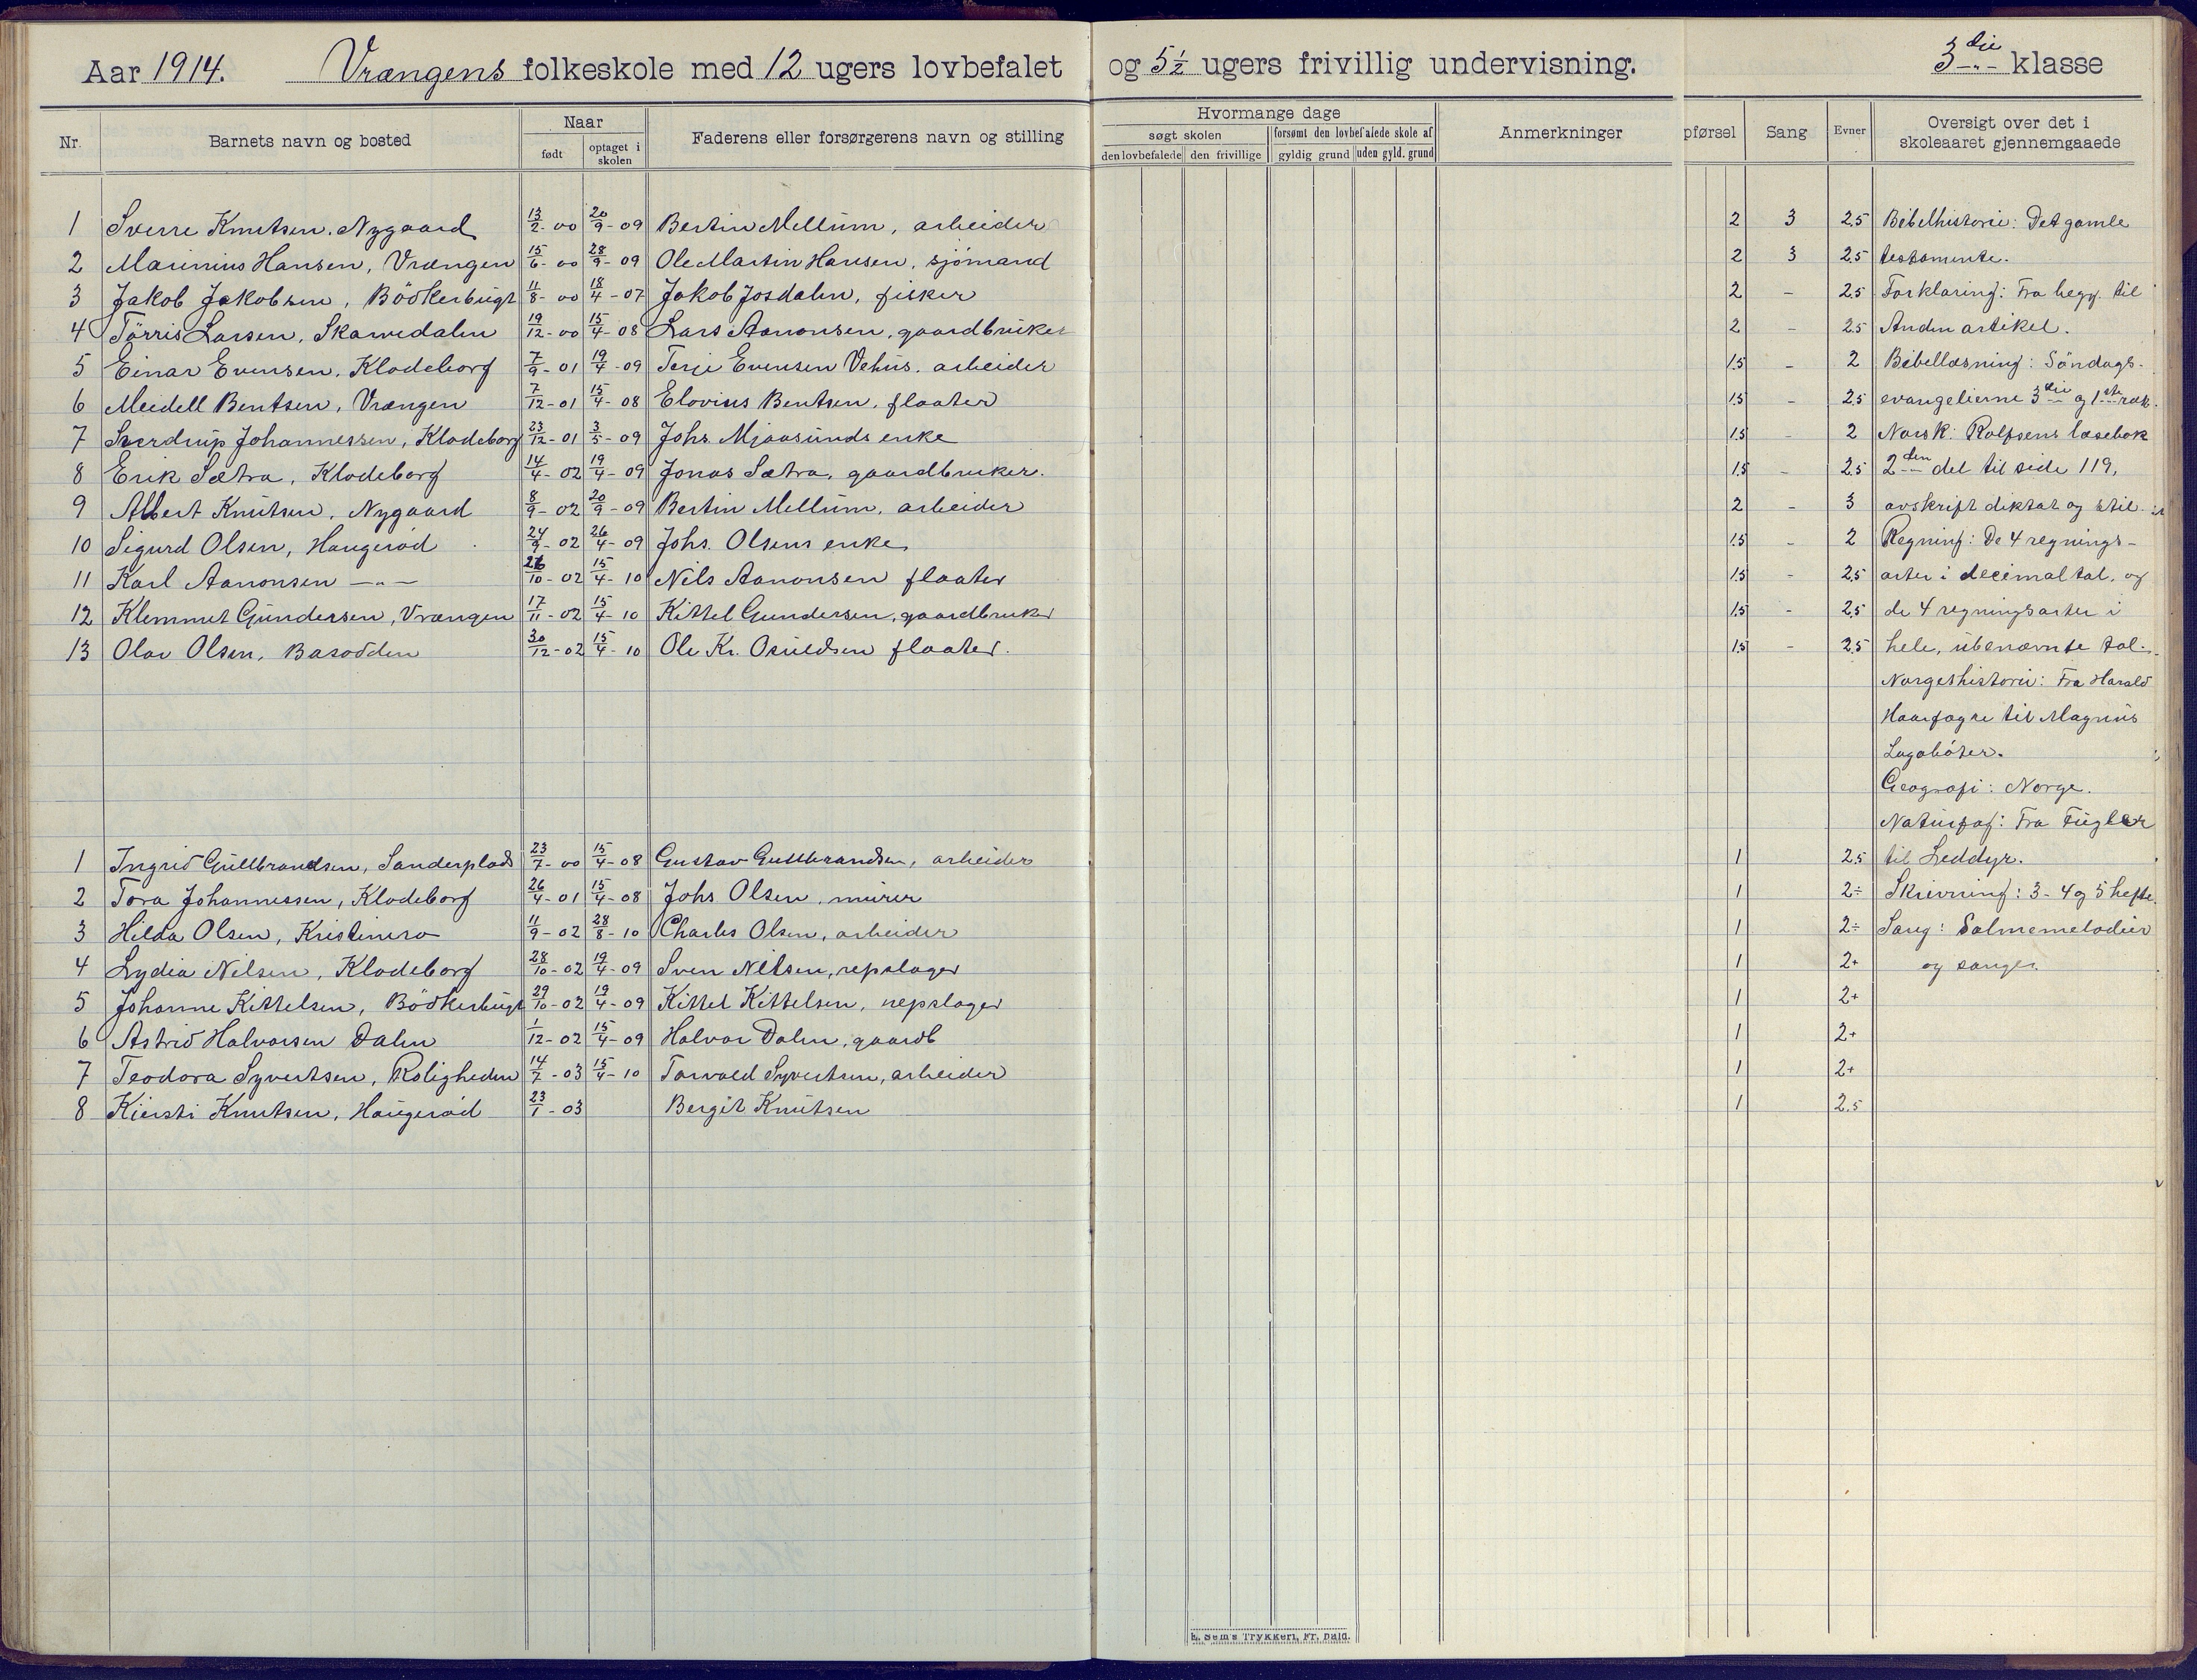 Aar 1914. Vrængens folkeskole med 12 ugers lovbefalet og 5 1/2 ugers frivillig undervisning. 3die klasse
Nr. Barnets navn og bosted Naar født optaget i skolen Faderens eller forsørgerens navn og stilling
Hvormange dage søgt skolen den lovbefalede den frivillige forsømt den lovbefalede skole af gyldig grund uden gyld. grund Anmerkninger
pførsel Sang Evner Oversigt over det i skoleaaret gjennemgaaede
1 Sverre Knutsen. Nygaard 13/2-00 20/9-09 Bertin Mellum, arbeider 2 3 2.5 Bibelhistorie: Det gamle
2 Marinius Hansen, Vrængen 15/6-00 28/9-09 Ole Martin Hansen, sjömand 2 3 2.5 testamente.
3 Jakob Jakobsen, Bödkerbugt 11/8-00 18/4-07 Jakob Josdalen, fisker 2 - 2.5 Forklaring: Fra begy. til
4 Törris Larsen, Skarvedalen 19/12-00 15/4-08 Lars Aanonsen, gaardbruker 2 - 2.5 Anden artikel.
5 Einar Evensen, Klodeborg 7/9-01 19/4-09 Terje Evensen Vehus. arbeider 1.5 - 2 Bibellæsning: Söndags-
6 Meidell Bentsen, Vrængen 7/12-01 15/4-08 Elovius Bentsen, flaater 1.5 - 2.5 evangelierne 3die og 1ste ræk.
7 Sverdrup Johannessen, Klodeborg 23/12-01 3/5-09 Johs. Mjaasunds enke 1.5 - 2 Norsk: Rolfsens læsebok
8 Erik Sætra, Klodeborg 14/4-02 19/4-09 Jonas Sætra, gaardbruker. 1.5 - 2.5 2den del til side 119,
9 Albert Knutsen, Nygaard 8/9-02 20/9-09 Bertin Mellum, arbeider 2 - 3 avskrift diktat og stil.
10 Sigurd Olsen, Haugeröd 24/9-02 26/4-09 Johs. Olsens enke 1.5 - 2 Regning: De 4 regnings-
11 Karl Aanonsen -"- 26/10-02 15/4-10 Nils Aanonsen flaater 1.5 - 2.5 arter i decimaltal, og
12 Klemmet Gundersen, Vrængen 17/11-02 15/4-10 Kittel Gundersen, gaardbruker 1.5 - 2.5 de 4 regningsarter i
13 Olav Olsen, Basodden 30/12-02 15/4-10 Ole Kr. Osuldsen flaater. 1.5 - 2.5 hele, ubenævnte tal.
Norgeshistorie: Fra Harald
Haarfagre til Magnus
Lagaböter.
Geografi: Norge.
Naturfag: Fra Fugler
1 Ingrid Gullbrandsen, Sanderplads 23/7-00 15/4-08 Gustav Gullbrandsen, arbeider 1 2.5 til Leddyr.
2 Tora Johannessen, Klodeborg 26/4-01 15/4-08 Johs Olsen, murer 1 2÷ Skrivning: 3-4 og 5 hefte.
3 Hilda Olsen, Kristinero 11/9-02 28/8-10 Charles Olsen, arbeider 1 2÷ Sang: Salmemelodier
4 Lydia Nilsen, Klodeborg 28/10-02 19/4-09 Sven Nilsen, repslager 1 2+ og sanger.
5 Johanne Kittelsen, Bödkerbugt 29/10-02 19/4-09 Kittel Kittelsen, repslager 1 2+
6 Astrid Halvorsen Dalen 1/12-02 15/4-09 Halvor Dalen, gaardb 1 2+
7 Teodora Syvertsen, Roligheden 14/7-03 15/4-10 Torvald Syvertsen, arbeider 1 2+
8 Kiersti Knutsen, Haugeröd 23/1-03 Bergit Knutsen 1 2.5
E. Sem's Trykkeri, Fr. hald.